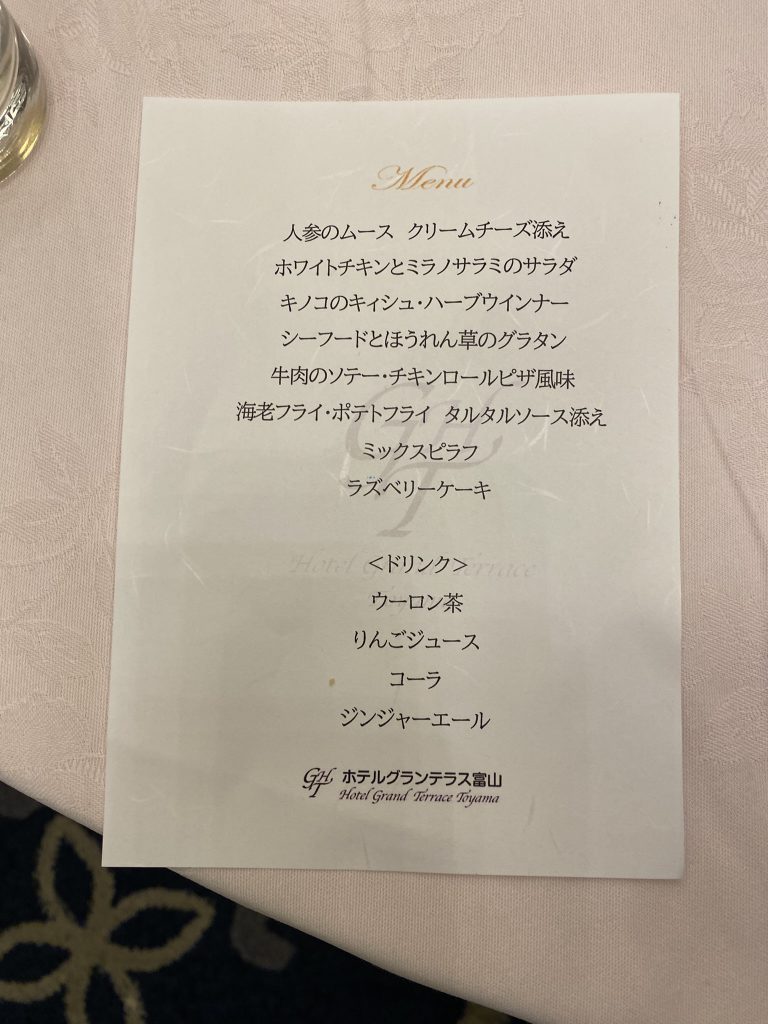 Menu
人参のムース クリームチーズ添え
ホワイトチキンとミラノサラミのサラダ
キノコのキィシュ・ハーブウインナー
シーフードとほうれん草のグラタン
牛肉のソテー・チキンロールピザ風味
海老フライ・ポテトフライ タルタルソース添え
ミックスピラフ
ラズベリーケーキ
GHT
Hotel Grand Terrace
<ドリンク>
ウーロン茶
りんごジュース
コーラ
ジンジャーエール
GHT ホテルグランテラス富山
Hotel Grand Terrace Toyama